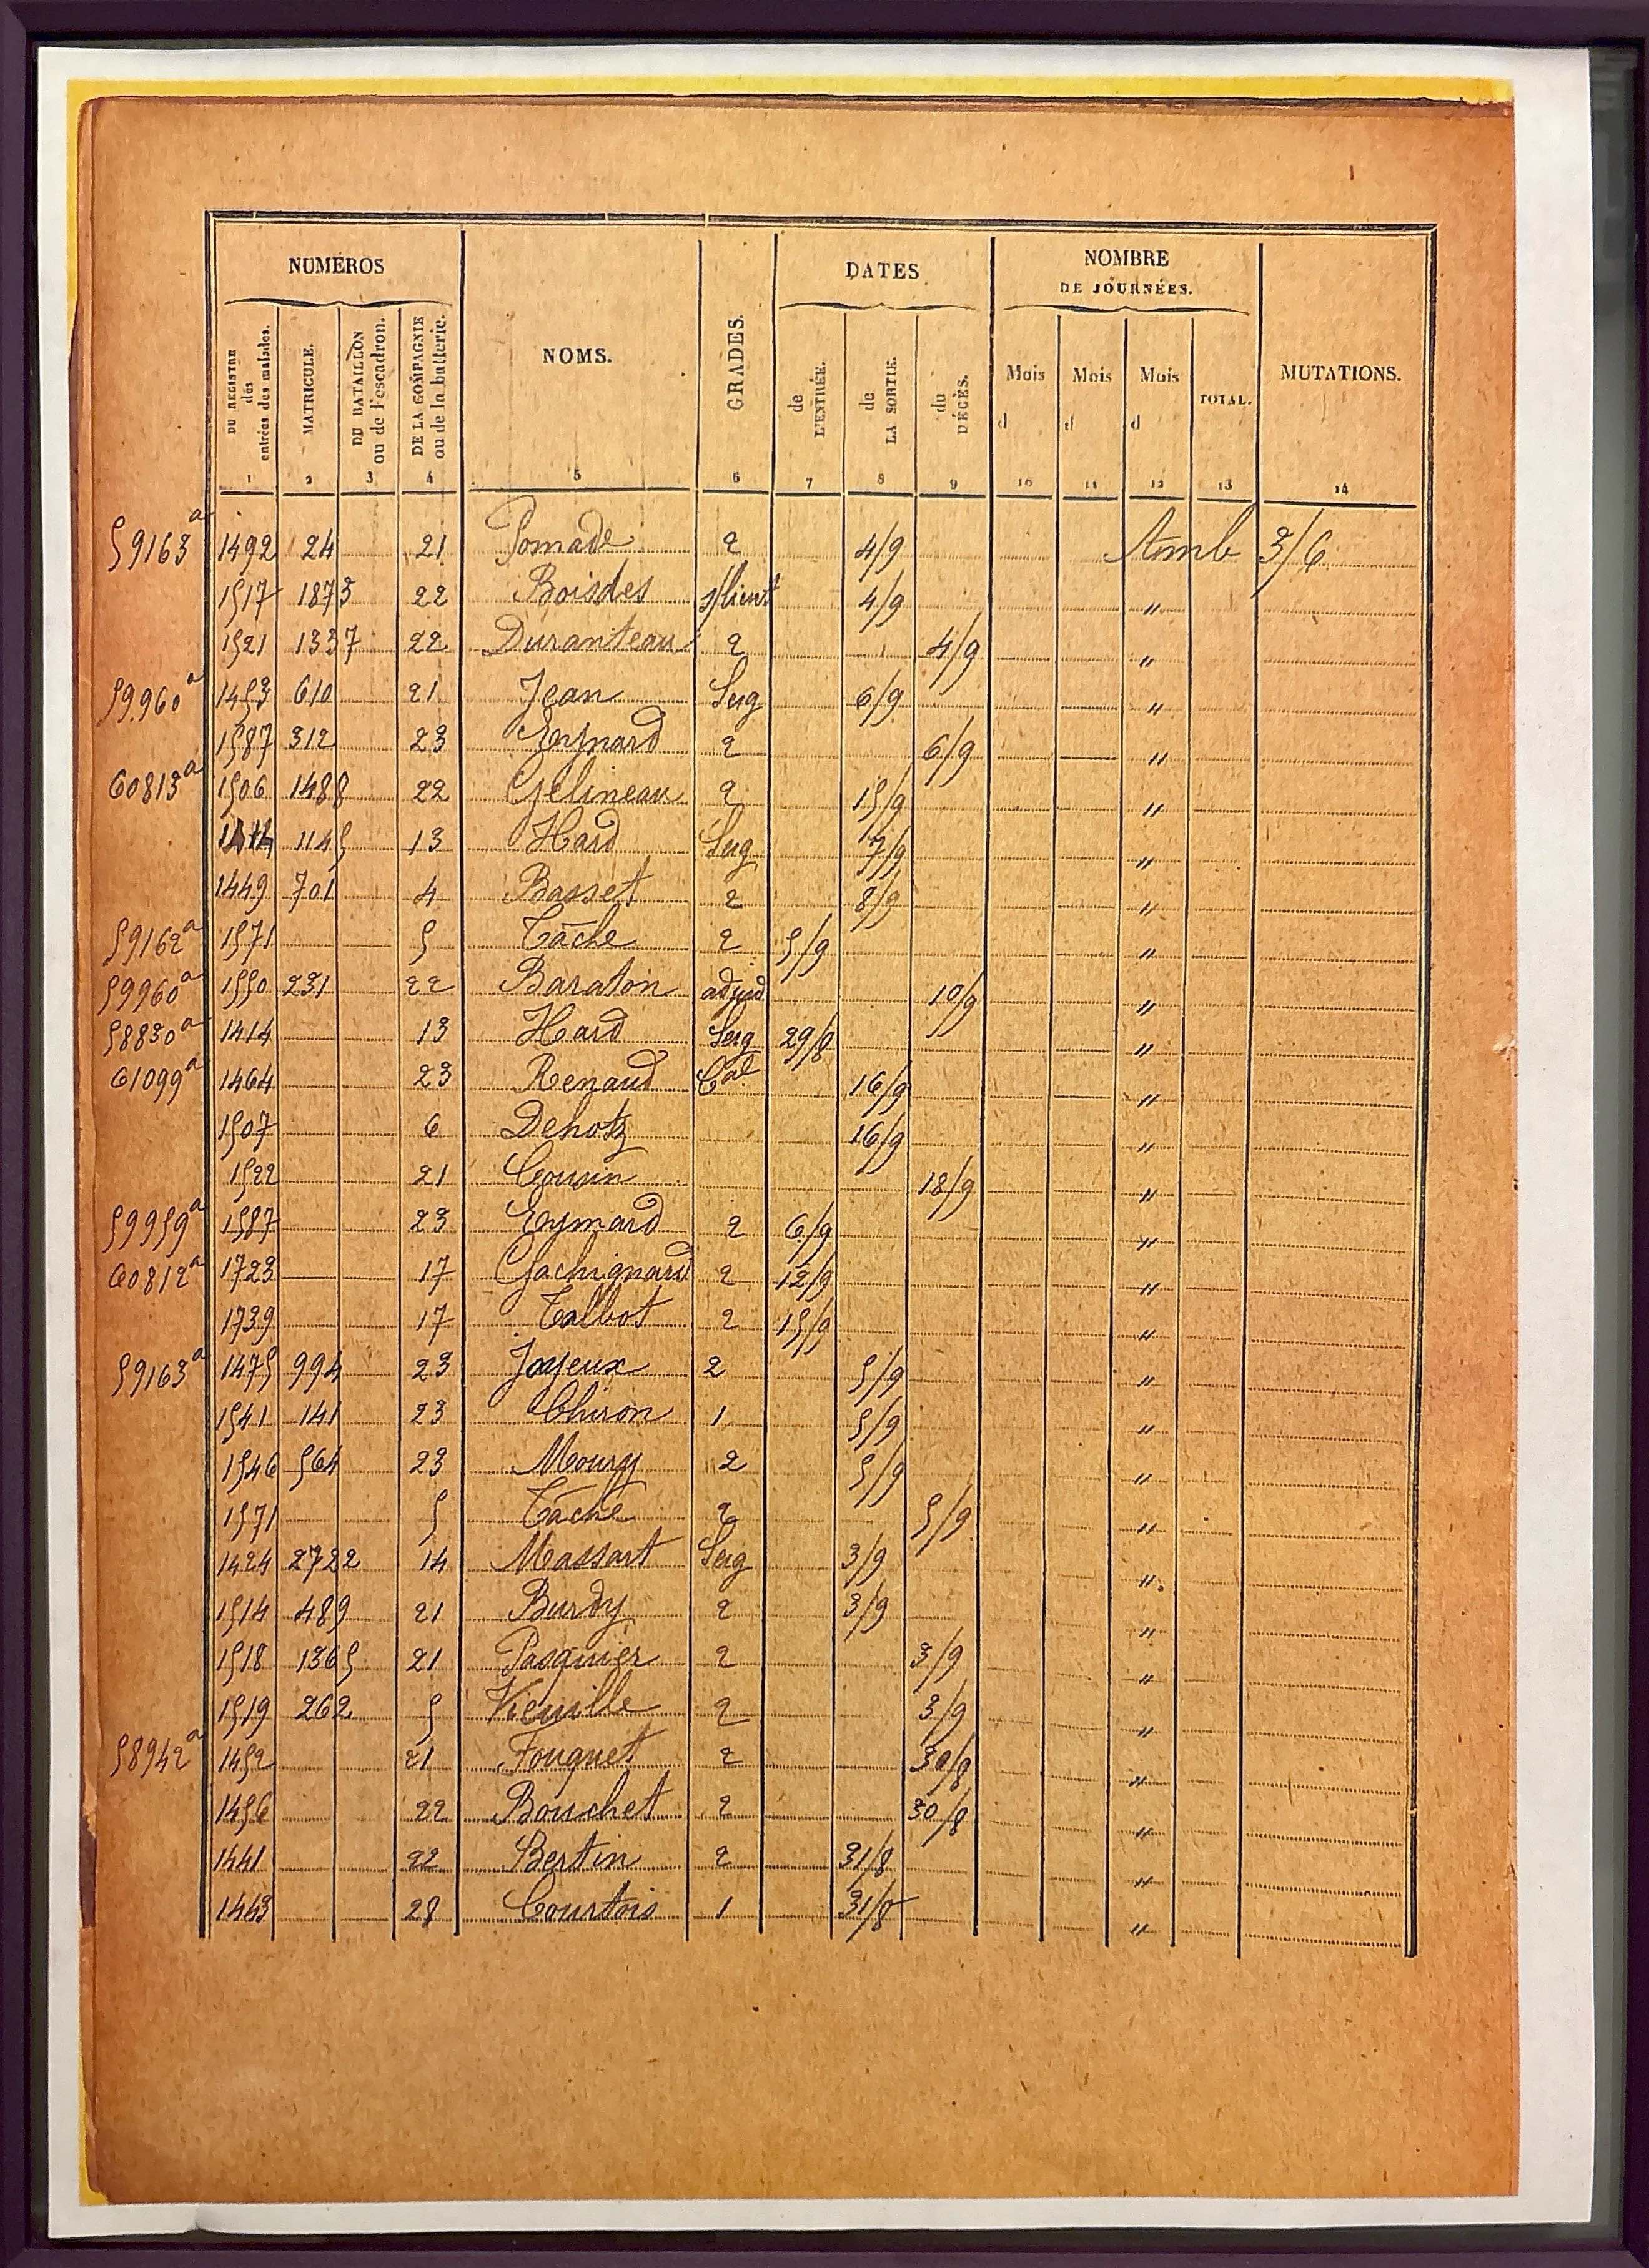 NUMÉROS
DATES
NOMBRE
DE JOURNÉES.
DU REGISTRE des entrées des malades.
MATRICULE.
DU BATAILLON ou de l'escadron.
DE LA COMPAGNIE ou de la batterie.
NOMS.
GRADES.
de L'ENTRÉE.
de LA SORTIE.
du DÉCÈS.
Mois d
Mois d
Mois d
TOTAL.
MUTATIONS.
1 2 3 4 5 6 7 8 9 10 11 12 13 14
59163a 1492 24 21 Pomade 2 4/9 Amb 3/6
1517 1873 22 Boisdes s/lieut 4/9 "
1521 1337 22 Duranteau 2 4/9 "
59960a 1453 610 21 Jean Serg 6/9 "
1587 312 23 Eymard 2 6/9 "
60813a 1506 1488 22 Gélineau 2 15/9 "
1145 13 Hard Serg 7/9 "
1449 701 4 Basset 2 8/9 "
59162a 1571 5 Tâche 2 5/9 "
59960a 1550 231 22 Baraton adjud 10/9 "
58830a 1414 13 Hard Serg 29/8 "
61099a 1464 23 Renaud Cal 16/9 "
1507 6 Dehotz 16/9 "
1522 21 Cousin 18/9 "
59959a 1587 23 Eymard 2 6/9 "
60812a 1723 17 Gachignard 2 12/9 "
1739 17 Talbot 2 15/9 "
59163a 1475 994 23 Joyeux 2 5/9 "
1541 141 23 Chiron 1 5/9 "
1546 564 23 Moury 2 5/9 "
1571 5 Tâche 2 5/9 "
1424 2722 14 Massart Serg 3/9 "
1514 489 21 Burdy 2 3/9 "
1518 1365 21 Pasquier 2 3/9 "
1519 262 5 Vieuille 2 3/9 "
58942a 1452 21 Fouquet 2 30/8 "
1456 22 Bouchet 2 30/8 "
1441 22 Bertin 2 31/8 "
1443 28 Courtois 1 31/8 "